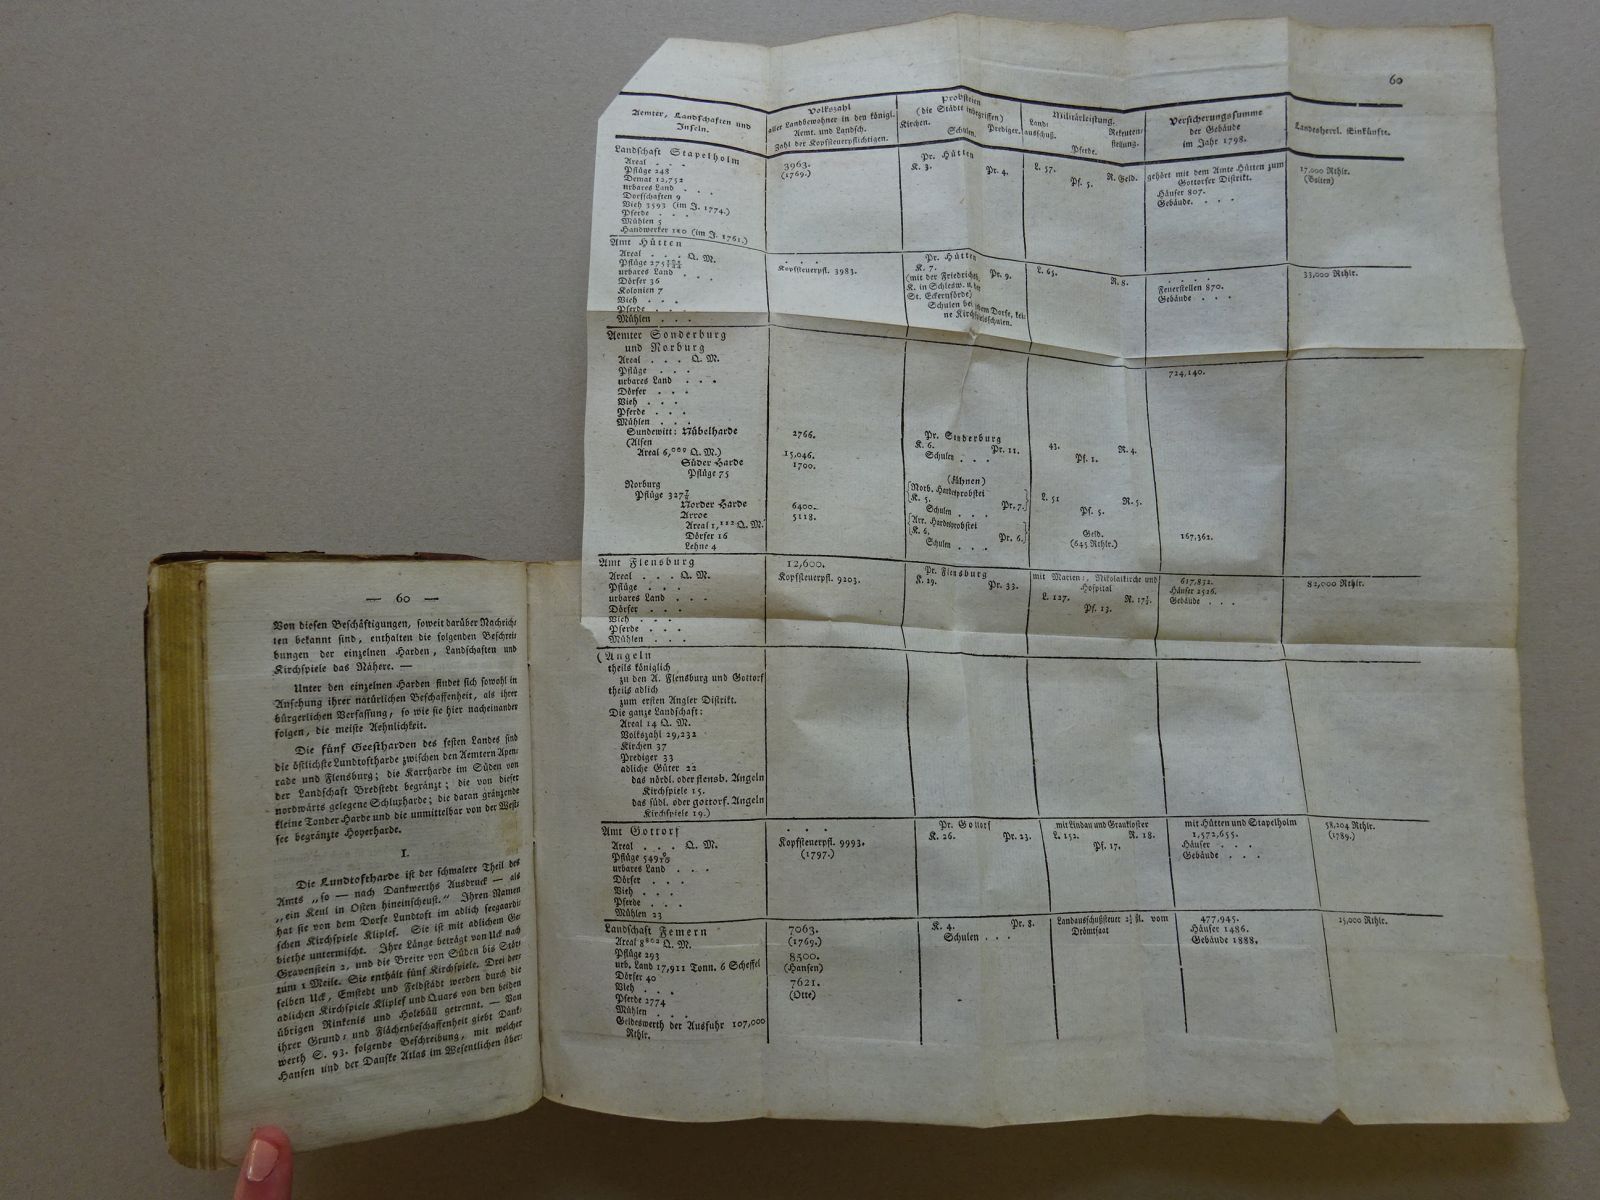 — 60 —
Von diesen Beschäftigungen, soweit darüber Nachrich-
ten bekannt sind, enthalten die folgenden Beschrei-
bungen der einzelnen Harden, Landschaften und
Kirchspiele das Nähere. —
Unter den einzelnen Harden findet sich sowohl in
Ansehung ihrer natürlichen Beschaffenheit, als ihrer
bürgerlichen Verfassung, so wie sie hier nacheinander
folgen, die meiste Aehnlichkeit.
Die fünf Geestharden des festen Landes sind
die östlichste Lundtoftharde zwischen den Aemtern Apen-
rade und Flensburg; die Karrharde im Süden von
der Landschaft Bredstedt begränzt; die von dieser
nordwärts gelegene Schluxharde; die daran gränzende
kleine Tonder Harde und die unmittelbar von der West-
see begränzte Hoyerharde.
I.
Die Lundtoftharde ist der schmalere Theil des
Amts „so — nach Dankwerths Ausdruck — als
„ein Keul in Osten hineinscheust.“ Ihren Namen
hat sie von dem Dorfe Lundtoft im adlich seegaardi-
schen Kirchspiele Kliplef. Sie ist mit adlichem Ge-
biethe untermischt. Ihre Länge beträgt von Uck nach
Gravenstein 2, und die Breite von Süden bis Stör-
tum 1 Meile. Sie enthält fünf Kirchspiele. Drei der-
selben Uck, Enstedt und Feldstädt werden durch die
adlichen Kirchspiele Kliplef und Quars von den beiden
übrigen Rinkenis und Holebüll getrennt. — Von
ihrer Grund- und Flächenbeschaffenheit giebt Dank-
werth S. 93. folgende Beschreibung, mit welcher
Hansen und der Danske Atlas im Wesentlichen über-
60
Aemter, Landschaften und
Inseln.
Volkszahl
aller Landbewohner in den königl.
Aemt. und Landsch.
Zahl der Kopfsteuerpflichtigen.
Probsteien
(die Städte inbegriffen)
Kirchen. Prediger.
Schulen.
Militärleistung.
Land-
ausschuß. Rekruten-
stellung.
Pferde.
Versicherungssumme
der Gebäude
im Jahr 1798.
Landesherrl. Einkünfte.
Landschaft Stapelholm
Areal . . .
Pflüge 248
Demat 12,752
urbares Land . . .
Dorfschaften 9
Vieh 3593 (im J. 1774.)
Pferde . . .
Mühlen 5
Handwerker 180 (im J. 1761.)
3963.
(1769.)
Pr. Hütten
K. 3. Pr. 4.
L. 57. R. Geld.
Pf. 5.
gehört mit dem Amte Hütten zum
Gottorfer Distrikt.
Häuser 807.
Gebäude. . . .
17,000 Rthlr.
(Bolten)
Amt Hütten
Areal . . . Q. M.
Pflüge 275
urbares Land . . .
Dörfer 36
Kolonien 7
Vieh . . .
Pferde . . .
Mühlen . . .
. . .
Kopfsteuerpfl. 3983.
Pr. Hütten
K. 7. Pr. 9.
(mit der Friedrichs-
K. in Schlesw. u. der
St. Eckernförde)
Schulen bei jedem Dorfe, kei-
ne Kirchspielsschulen.
L. 65. R. 8.
. . .
Feuerstellen 870.
Gebäude . . .
33,000 Rthlr.
Aemter Sonderburg
und Norburg
Areal . . . Q. M.
Pflüge . . .
urbares Land . . .
Dörfer . . .
Vieh . . .
Pferde . . .
Mühlen . . .
724,140.
Sundewitt: Nübelharde
(Alsen
Areal 6,⁰⁸⁰ Q. M.)
Süder Harde
Pflüge 75
2766.
15,046.
1700.
Pr. Sonderburg
K. 6. Pr. 11.
Schulen . . .
43. R. 4.
Pf. 1.
Norburg
Pflüge 327⅞
Norder Harde
Arroe
Areal 1,¹¹² Q. M.
Dörfer 16
Lehne 4
6400.
5118.
(Fühnen)
Norb. Hardesprobstei
K. 5. Pr. 7.
Schulen . . .
Arr. Hardesprobstei
K. 6. Pr. 6.
Schulen . . .
L. 51 R. 5.
Pf. 5.
Geld.
(645 Rthlr.)
167,362.
Amt Flensburg
Areal . . . Q. M.
Pflüge . . .
urbares Land . . .
Dörfer . . .
Vieh . . .
Pferde . . .
Mühlen . . .
12,600.
Kopfsteuerpfl. 9203.
Pr. Flensburg
K. 29. Pr. 33.
mit Marien-, Nikolaikirche und
Hospital
L. 127. R. 17½.
Pf. 13.
617,832.
Häuser 2526.
Gebäude . . .
82,000 Rthlr.
(Angeln
theils königlich
zu den A. Flensburg und Gottorf
theils adlich
zum ersten Angler Distrikt.
Die ganze Landschaft:
Areal 14 Q. M.
Volkszahl 29,232
Kirchen 37
Prediger 33
adliche Güter 22
das nördl. oder flensb. Angeln
Kirchspiele 15.
das südl. oder gottorf. Angeln
Kirchspiele 19.)
Amt Gottorf
Areal . . . Q. M.
Pflüge 549
urbares Land . . .
Dörfer . . .
Vieh . . .
Pferde . . .
Mühlen 23
. . .
Kopfsteuerpfl. 9993.
(1797.)
Pr. Gottorf
K. 26. Pr. 23.
mit Lindau und Graukloster
L. 152. R. 18.
Pf. 17.
mit Hütten und Stapelholm
1,572,655.
Häuser . . .
Gebäude . . .
58,204 Rthlr.
(1789.)
Landschaft Femern
Areal 8⁸⁰² Q. M.
Pflüge 293
urb. Land 17,911 Tonn. 6 Scheffel
Dörfer 40
Vieh . . .
Pferde 2774
Mühlen . . .
Geldeswerth der Ausfuhr 107,000
Rthlr.
7063.
(1769.)
8500.
(Hansen)
7621.
(Otte)
K. 4. Pr. 8.
Schulen . . .
Landausschußsteuer 2½ ßl. vom
Drömtsaat
477,945.
Häuser 1486.
Gebäude 1888.
25,000 Rthlr.